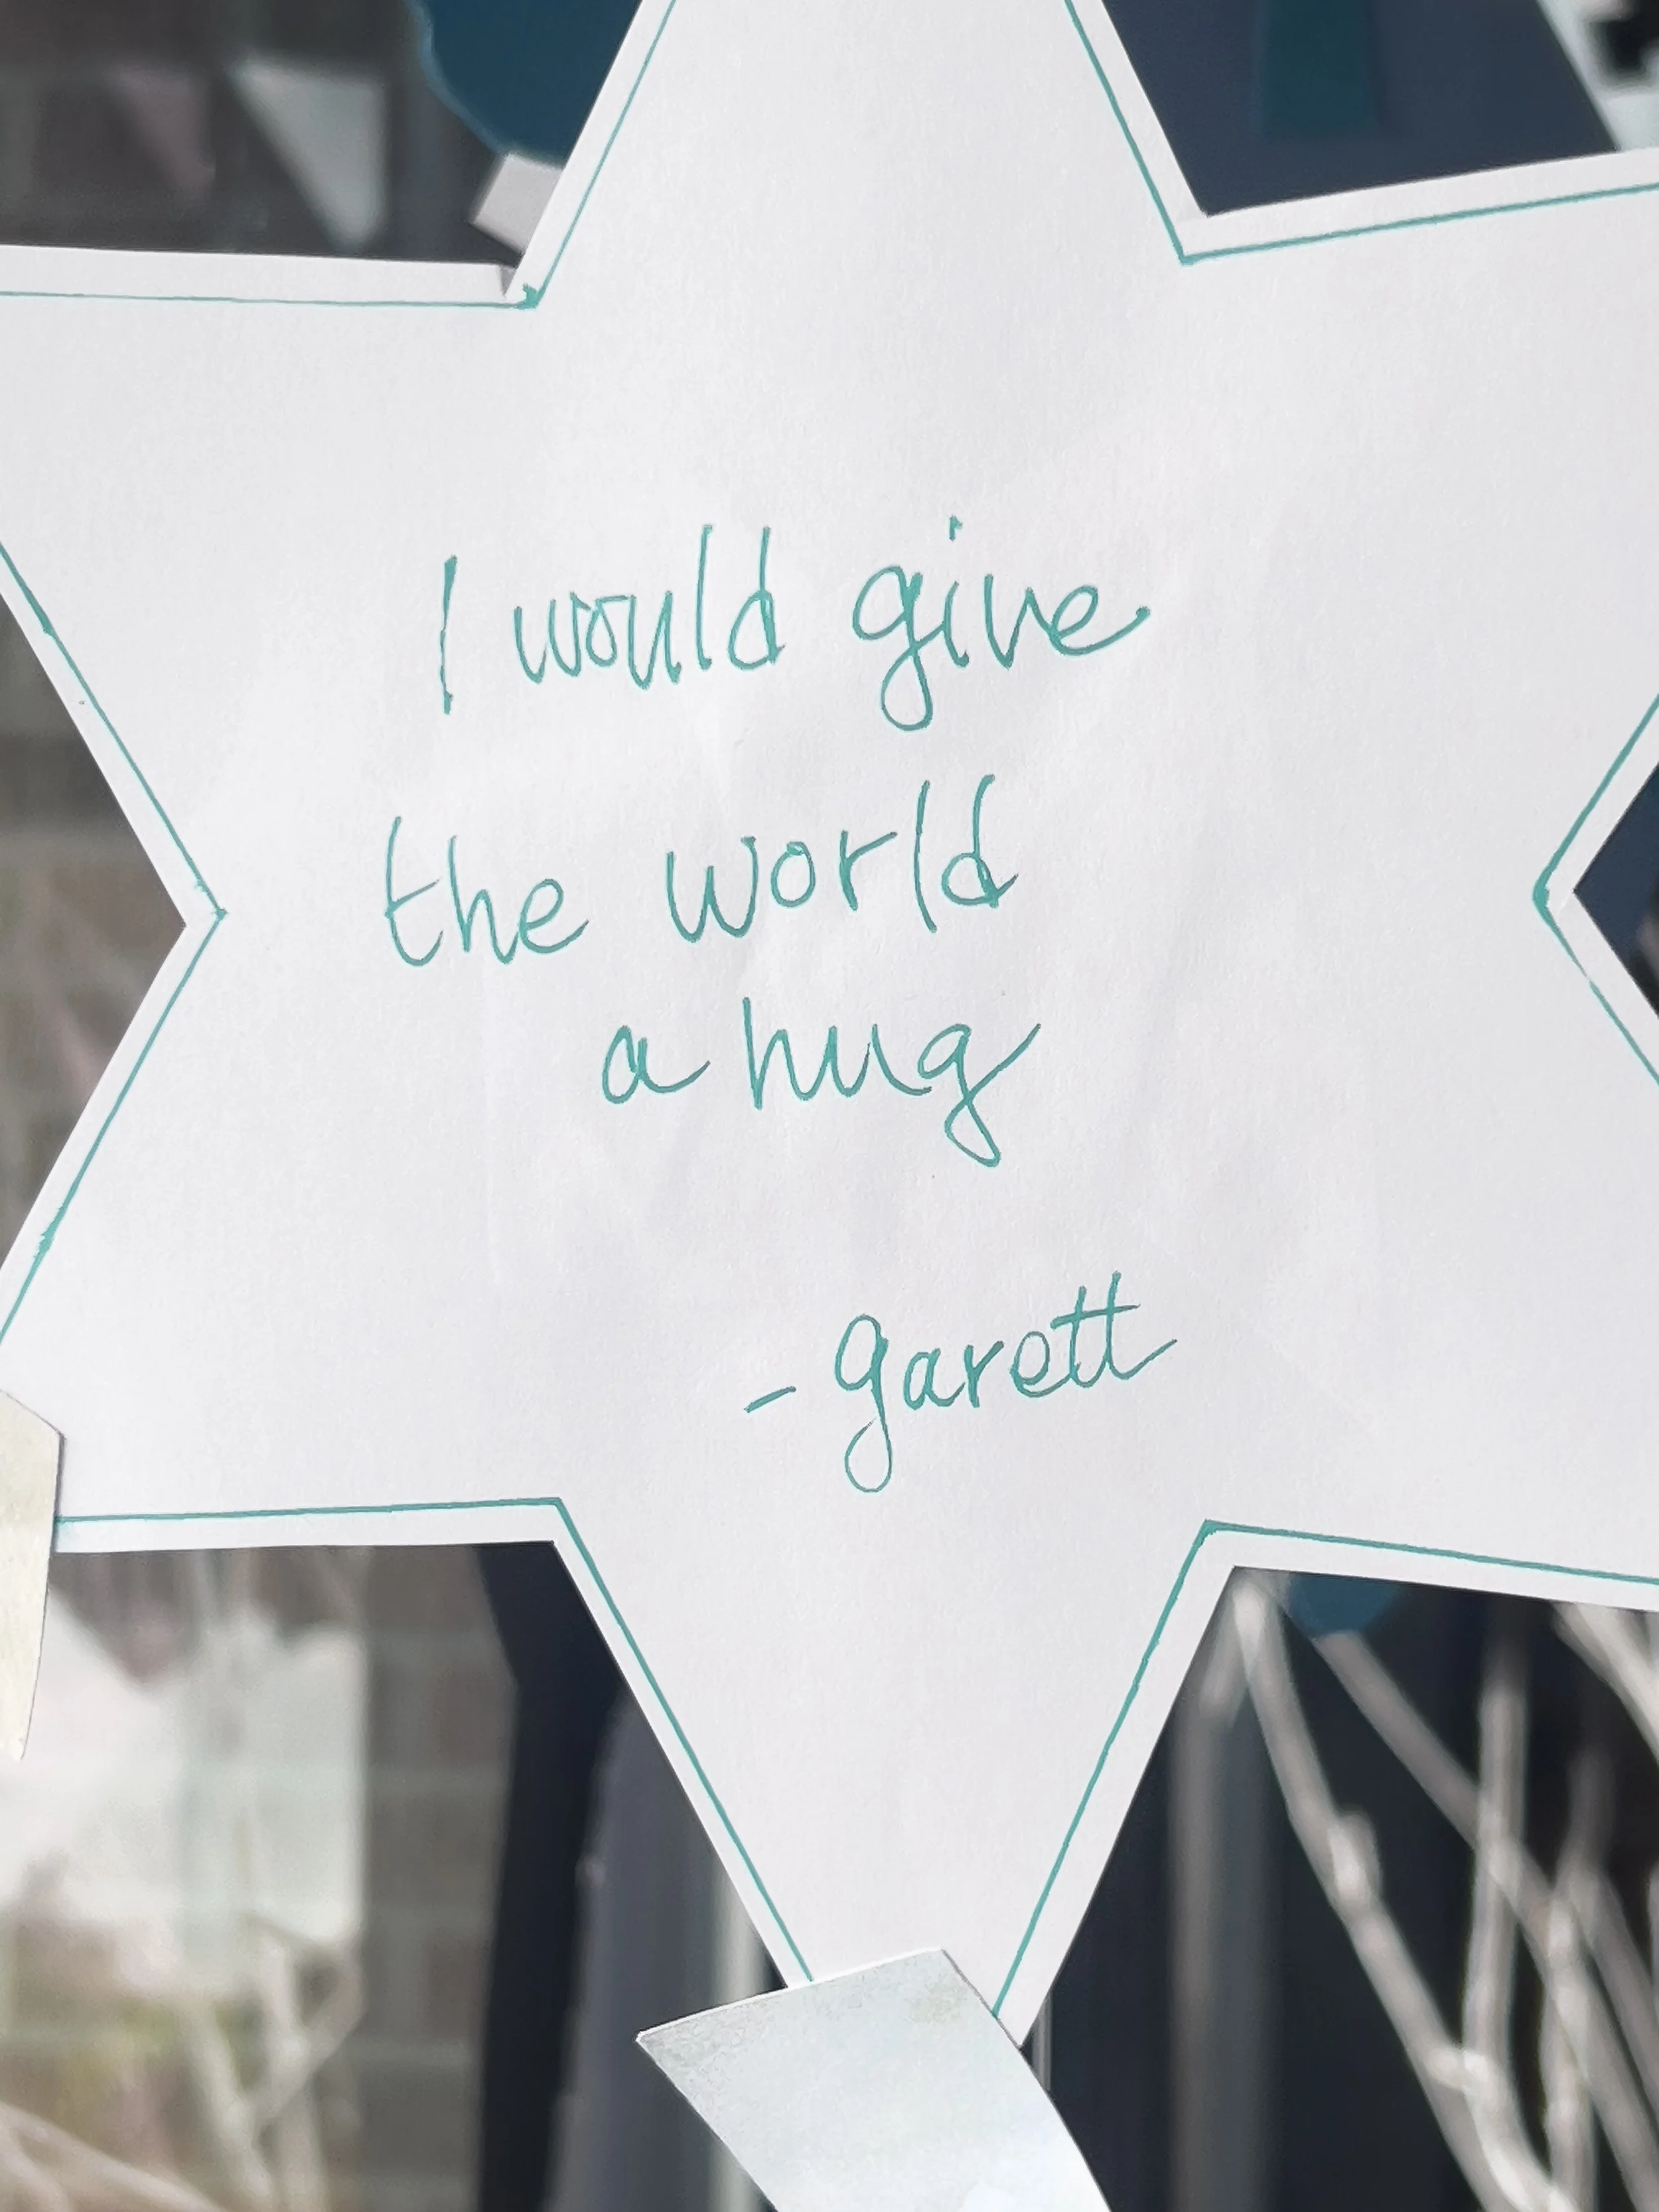 I would give
the world
a hug
- garett